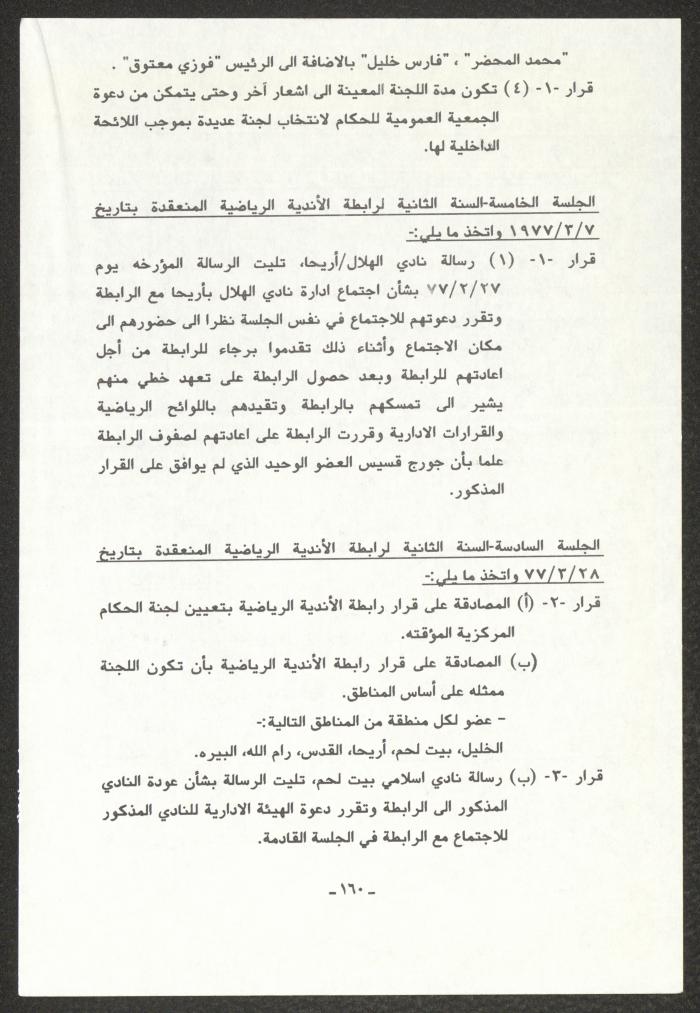 "محمد المحضر" ، "فارس خليل" بالاضافة الى الرئيس "فوزي معتوق" .
قرار -١- (٤) تكون مدة اللجنة المعينة الى اشعار آخر وحتى يتمكن من دعوة
الجمعية العمومية للحكام لانتخاب لجنة عديدة بموجب اللائحة
الداخلية لها.
الجلسة الخامسة-السنة الثانية لرابطة الأندية الرياضية المنعقدة بتاريخ
١٩٧٧/٣/٧ واتخذ ما يلي:-
قرار -١- (١) رسالة نادي الهلال/أريحا، تليت الرسالة المؤرخه يوم
٧٧/٢/٢٧ بشأن اجتماع ادارة نادي الهلال بأريحا مع الرابطة
وتقرر دعوتهم للاجتماع في نفس الجلسة نظرا الى حضورهم الى
مكان الاجتماع وأثناء ذلك تقدموا برجاء للرابطة من أجل
اعادتهم للرابطة وبعد حصول الرابطة على تعهد خطي منهم
يشير الى تمسكهم بالرابطة وتقيدهم باللوائح الرياضية
والقرارات الادارية وقررت الرابطة على اعادتهم لصفوف الرابطة
علما بأن جورج قسيس العضو الوحيد الذي لم يوافق على القرار
المذكور.
الجلسة السادسة-السنة الثانية لرابطة الأندية الرياضية المنعقدة بتاريخ
٧٧/٣/٢٨ واتخذ ما يلي:-
قرار -٢- (أ) المصادقة على قرار رابطة الأندية الرياضية بتعيين لجنة الحكام
المركزية المؤقته.
(ب) المصادقة على قرار رابطة الأندية الرياضية بأن تكون اللجنة
ممثله على أساس المناطق.
- عضو لكل منطقة من المناطق التالية:-
الخليل، بيت لحم، أريحا، القدس، رام الله، البيره.
قرار -٣- (ب) رسالة نادي اسلامي بيت لحم، تليت الرسالة بشأن عودة النادي
المذكور الى الرابطة وتقرر دعوة الهيئة الادارية للنادي المذكور
للاجتماع مع الرابطة في الجلسة القادمة.
ـ ١٦٠ ـ